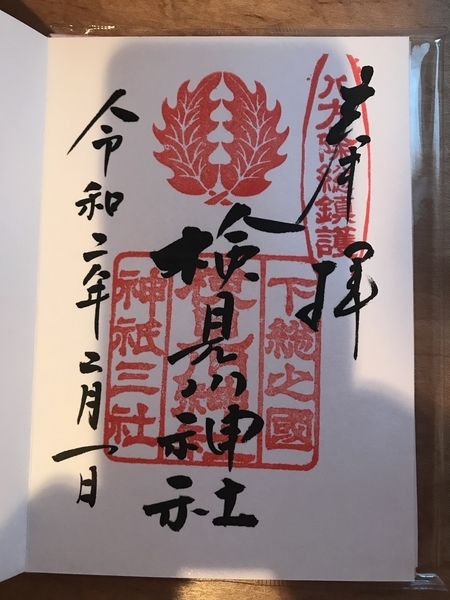 八方除総鎮護
奉拝
下総之國
検見川神社
神祇三社
令和二年二月一日